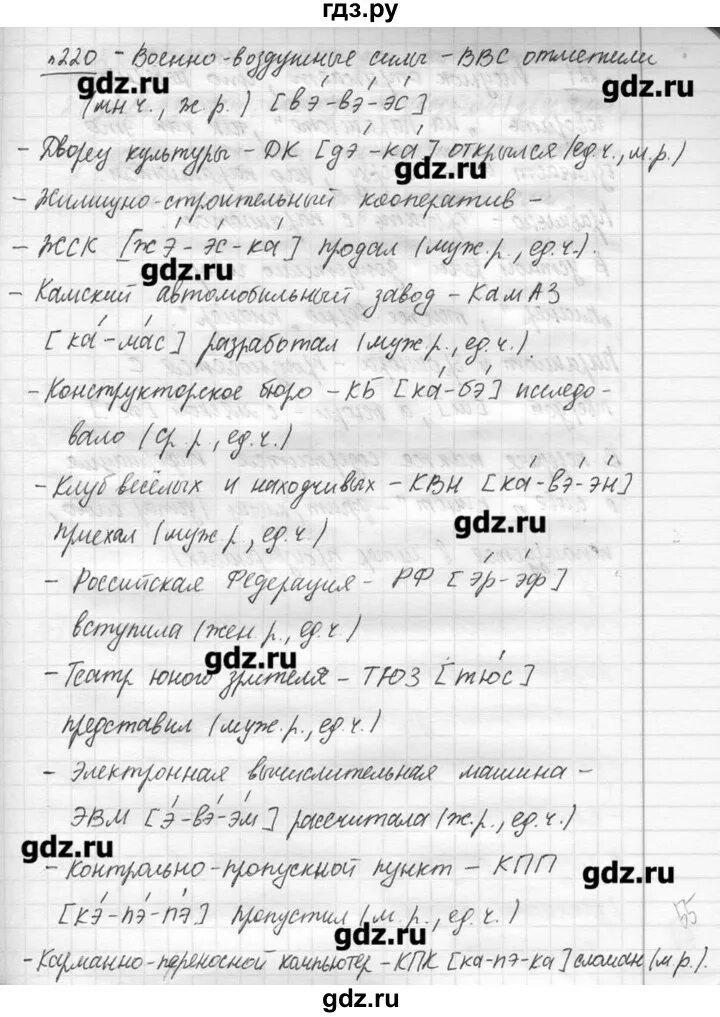 гдз.ру
п220 - Военно-воздушные силы - ВВС отметили
gdz.ru
(мн.ч., ж.р.) [вэ́-вэ́-э́с]
gdz.ru
- Дворец культуры - ДК [дэ-ка́] открылся (ед.ч., м.р.)
- Жилищно-строительный кооператив -
- ЖСК [жэ́-э́с-ка́] продал (муж.р., ед.ч.).
gdz.ru
- Камский автомобильный завод - КамАЗ
[ка́-ма́с] разработал (муж.р., ед.ч.).
gdz.ru
- Конструкторское бюро - КБ [ка́-бэ́] исследо-
вало (ср.р., ед.ч.)
- Клуб весёлых и находчивых - КВН [ка́-вэ́-э́н]
приехал (муж.р., ед.ч.)
gdz.ru
- Российская Федерация - РФ [э́р-э́ф]
вступила (жен.р., ед.ч.)
gdz.ru
- Театр юного зрителя - ТЮЗ [тю́с]
представил (муж.р., ед.ч.)
- Электронная вычислительная машина -
ЭВМ [э́-вэ́-э́м] рассчитала (ж.р., ед.ч.)
gdz.ru
- Контрольно-пропускной пункт - КПП
gdz.ru
[кэ́-пэ́-пэ́] пропустил (м.р., ед.ч.)
55
gdz.ru
- Карманно-переносной компьютер - КПК [ка-пэ-ка] сломан (м.р.).
gdz.ru